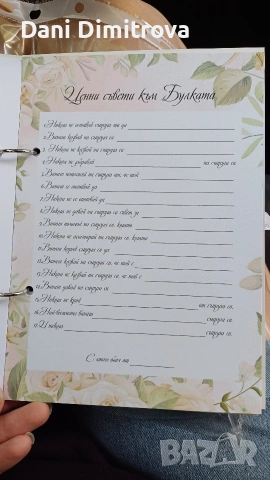 Dani Dimitrova
Ценни съвети към Булката
1. Никога не оставяй съпруга ти да
2. Винаги казвай на съпруга си
3. Никога не казвай на съпруга си
4. Никога не забравяй на съпруга си
5. Винаги
6. Винаги се опитвай да
7. Никога не се опитвай да
8. Никога не давай на съпруга си съвет за
9. Винаги съпруга си, когато
10. Никога не съпруга си, когато
11. Винаги вярвай съпруга си, че той е
12. Винаги казвай на съпруга си, че той е
13. Никога не казвай на съпруга си, че той е
14. Винаги давай на съпруга си
15. Никога не крий от съпруга си.
16. Най-важното винаги съпруга си.
17. И никога съпруга си.
С много обич от
bazar.bg